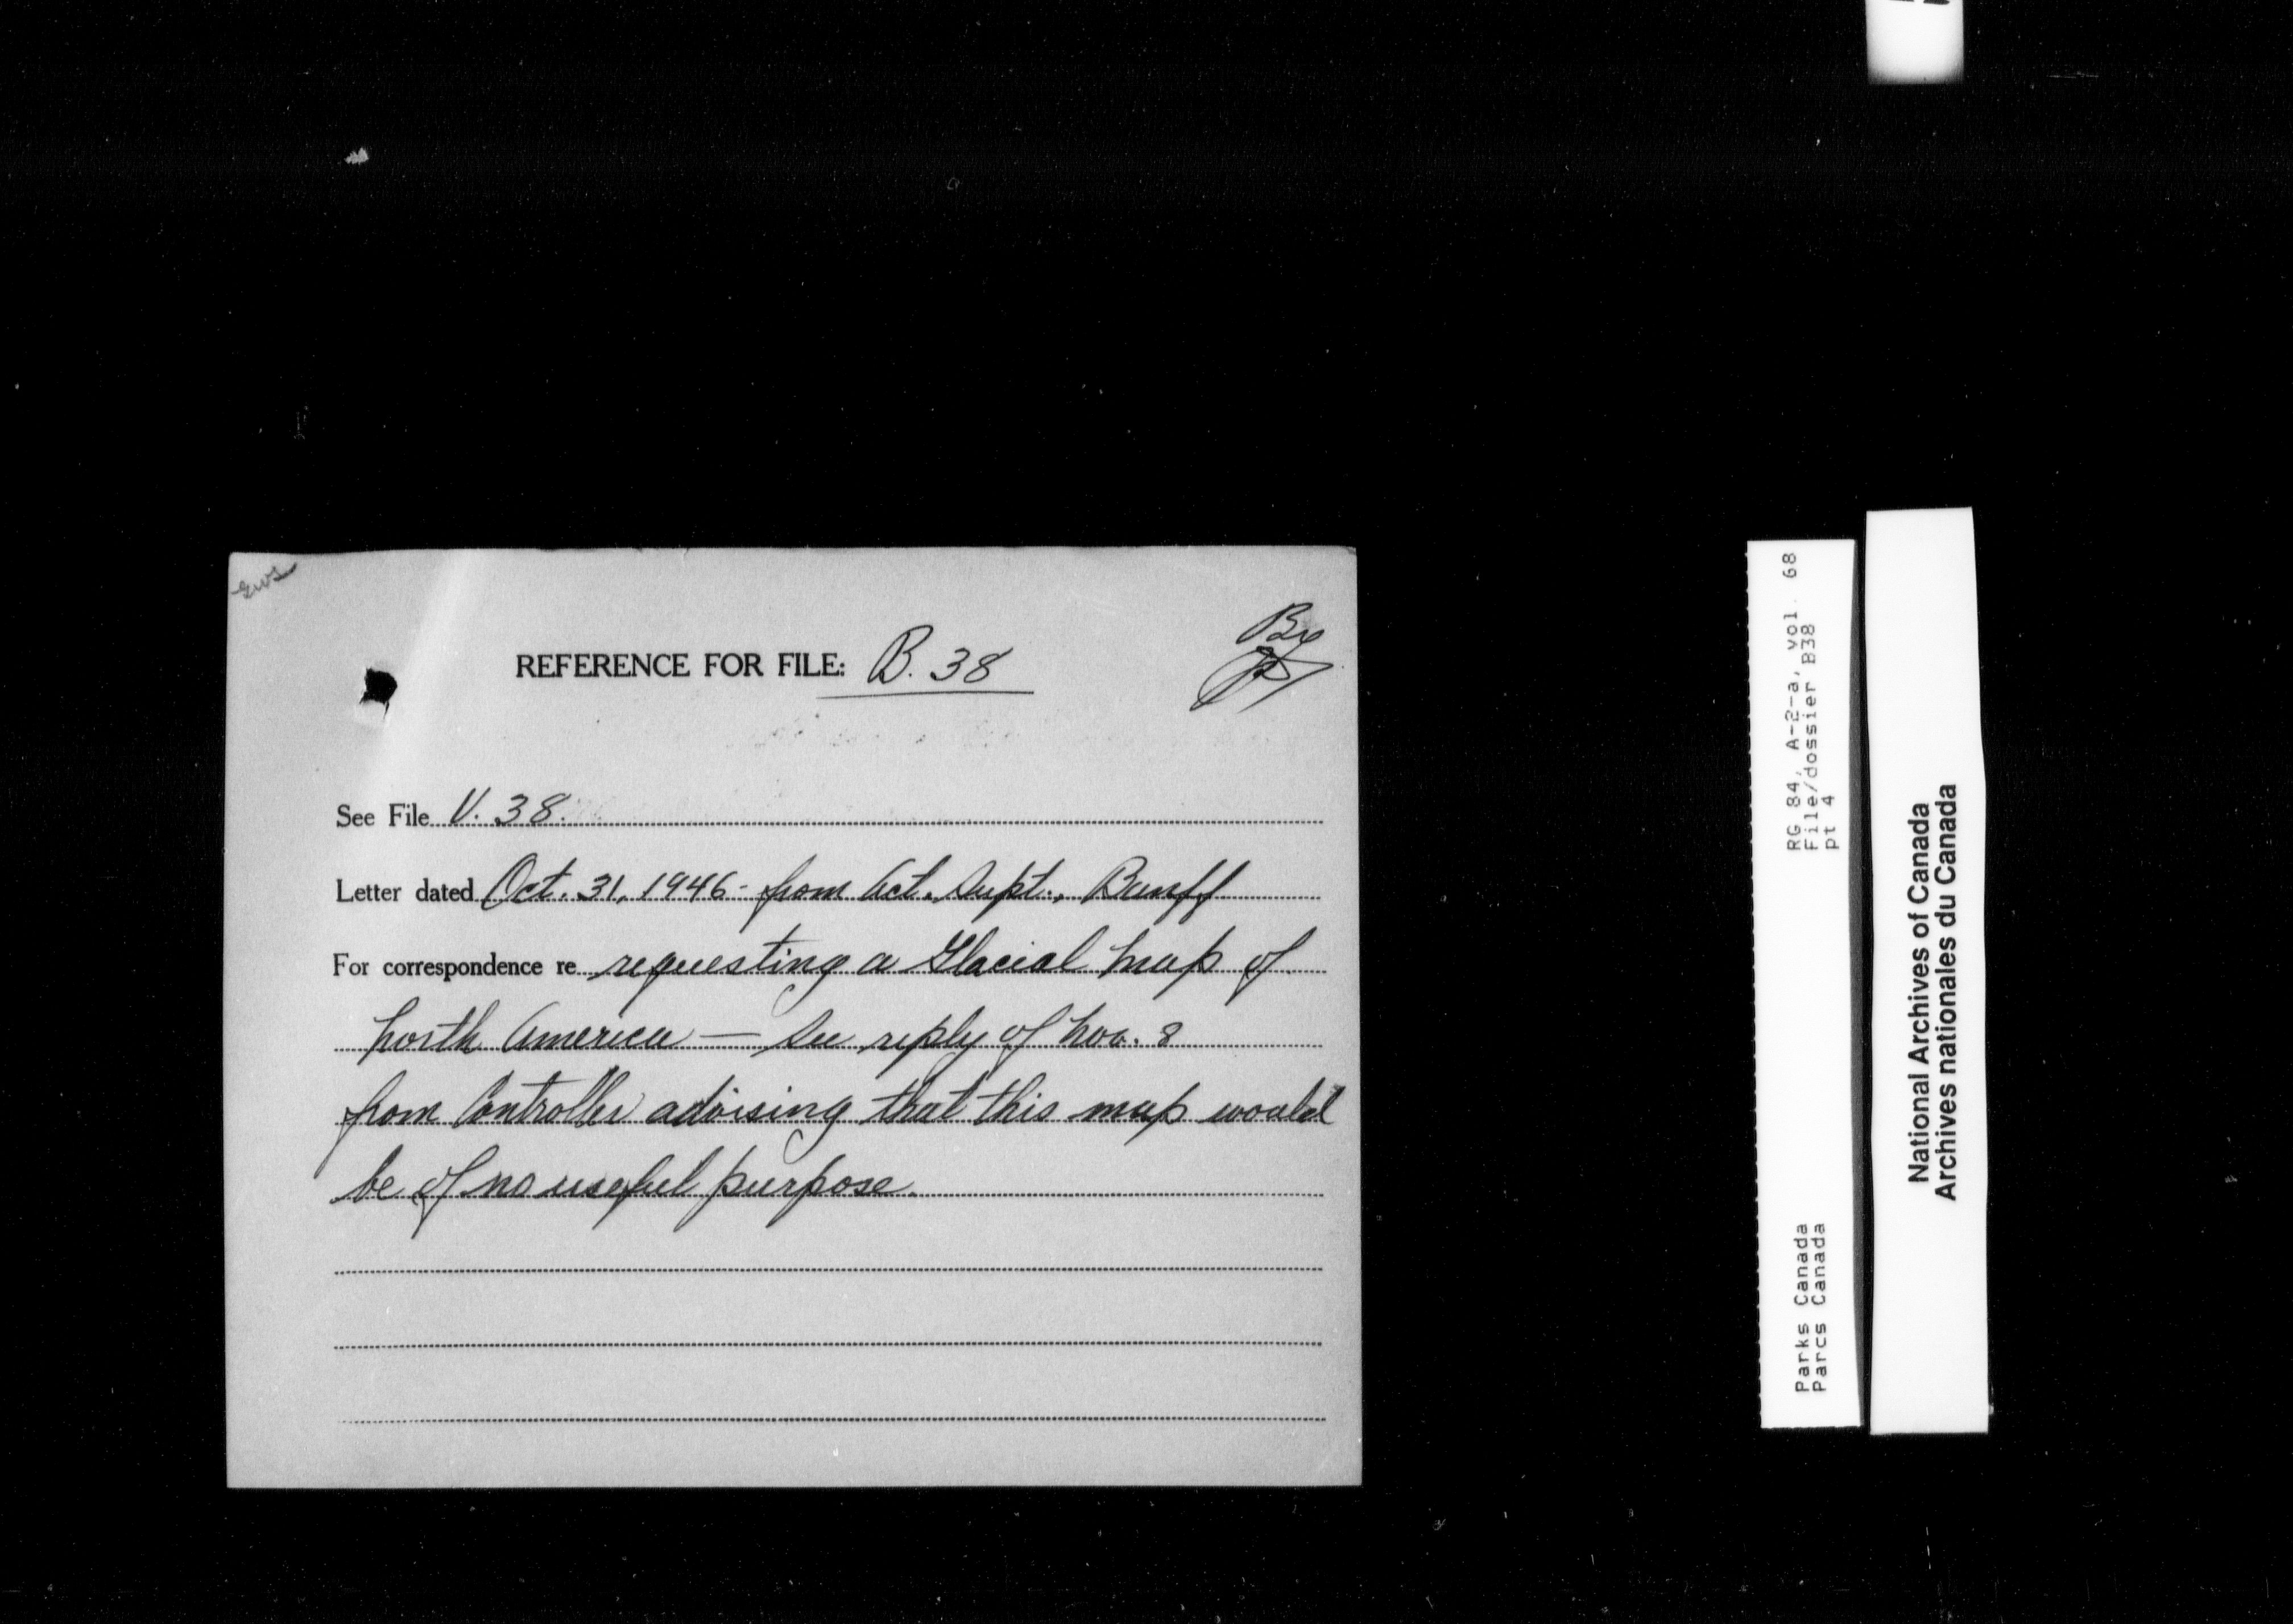 REFERENCE FOR FILE: B. 38
See File V. 38.
Letter dated Oct. 31, 1946 - from Act. Supt., Banff
For correspondence re requesting a Glacial Map of
North America — See reply of Nov. 8
from Controller advising that this map would
be of no useful purpose.
RG 84, A-2-a, vol 68
File/dossier B38
pt 4
Parks Canada
Parcs Canada
National Archives of Canada
Archives nationales du Canada